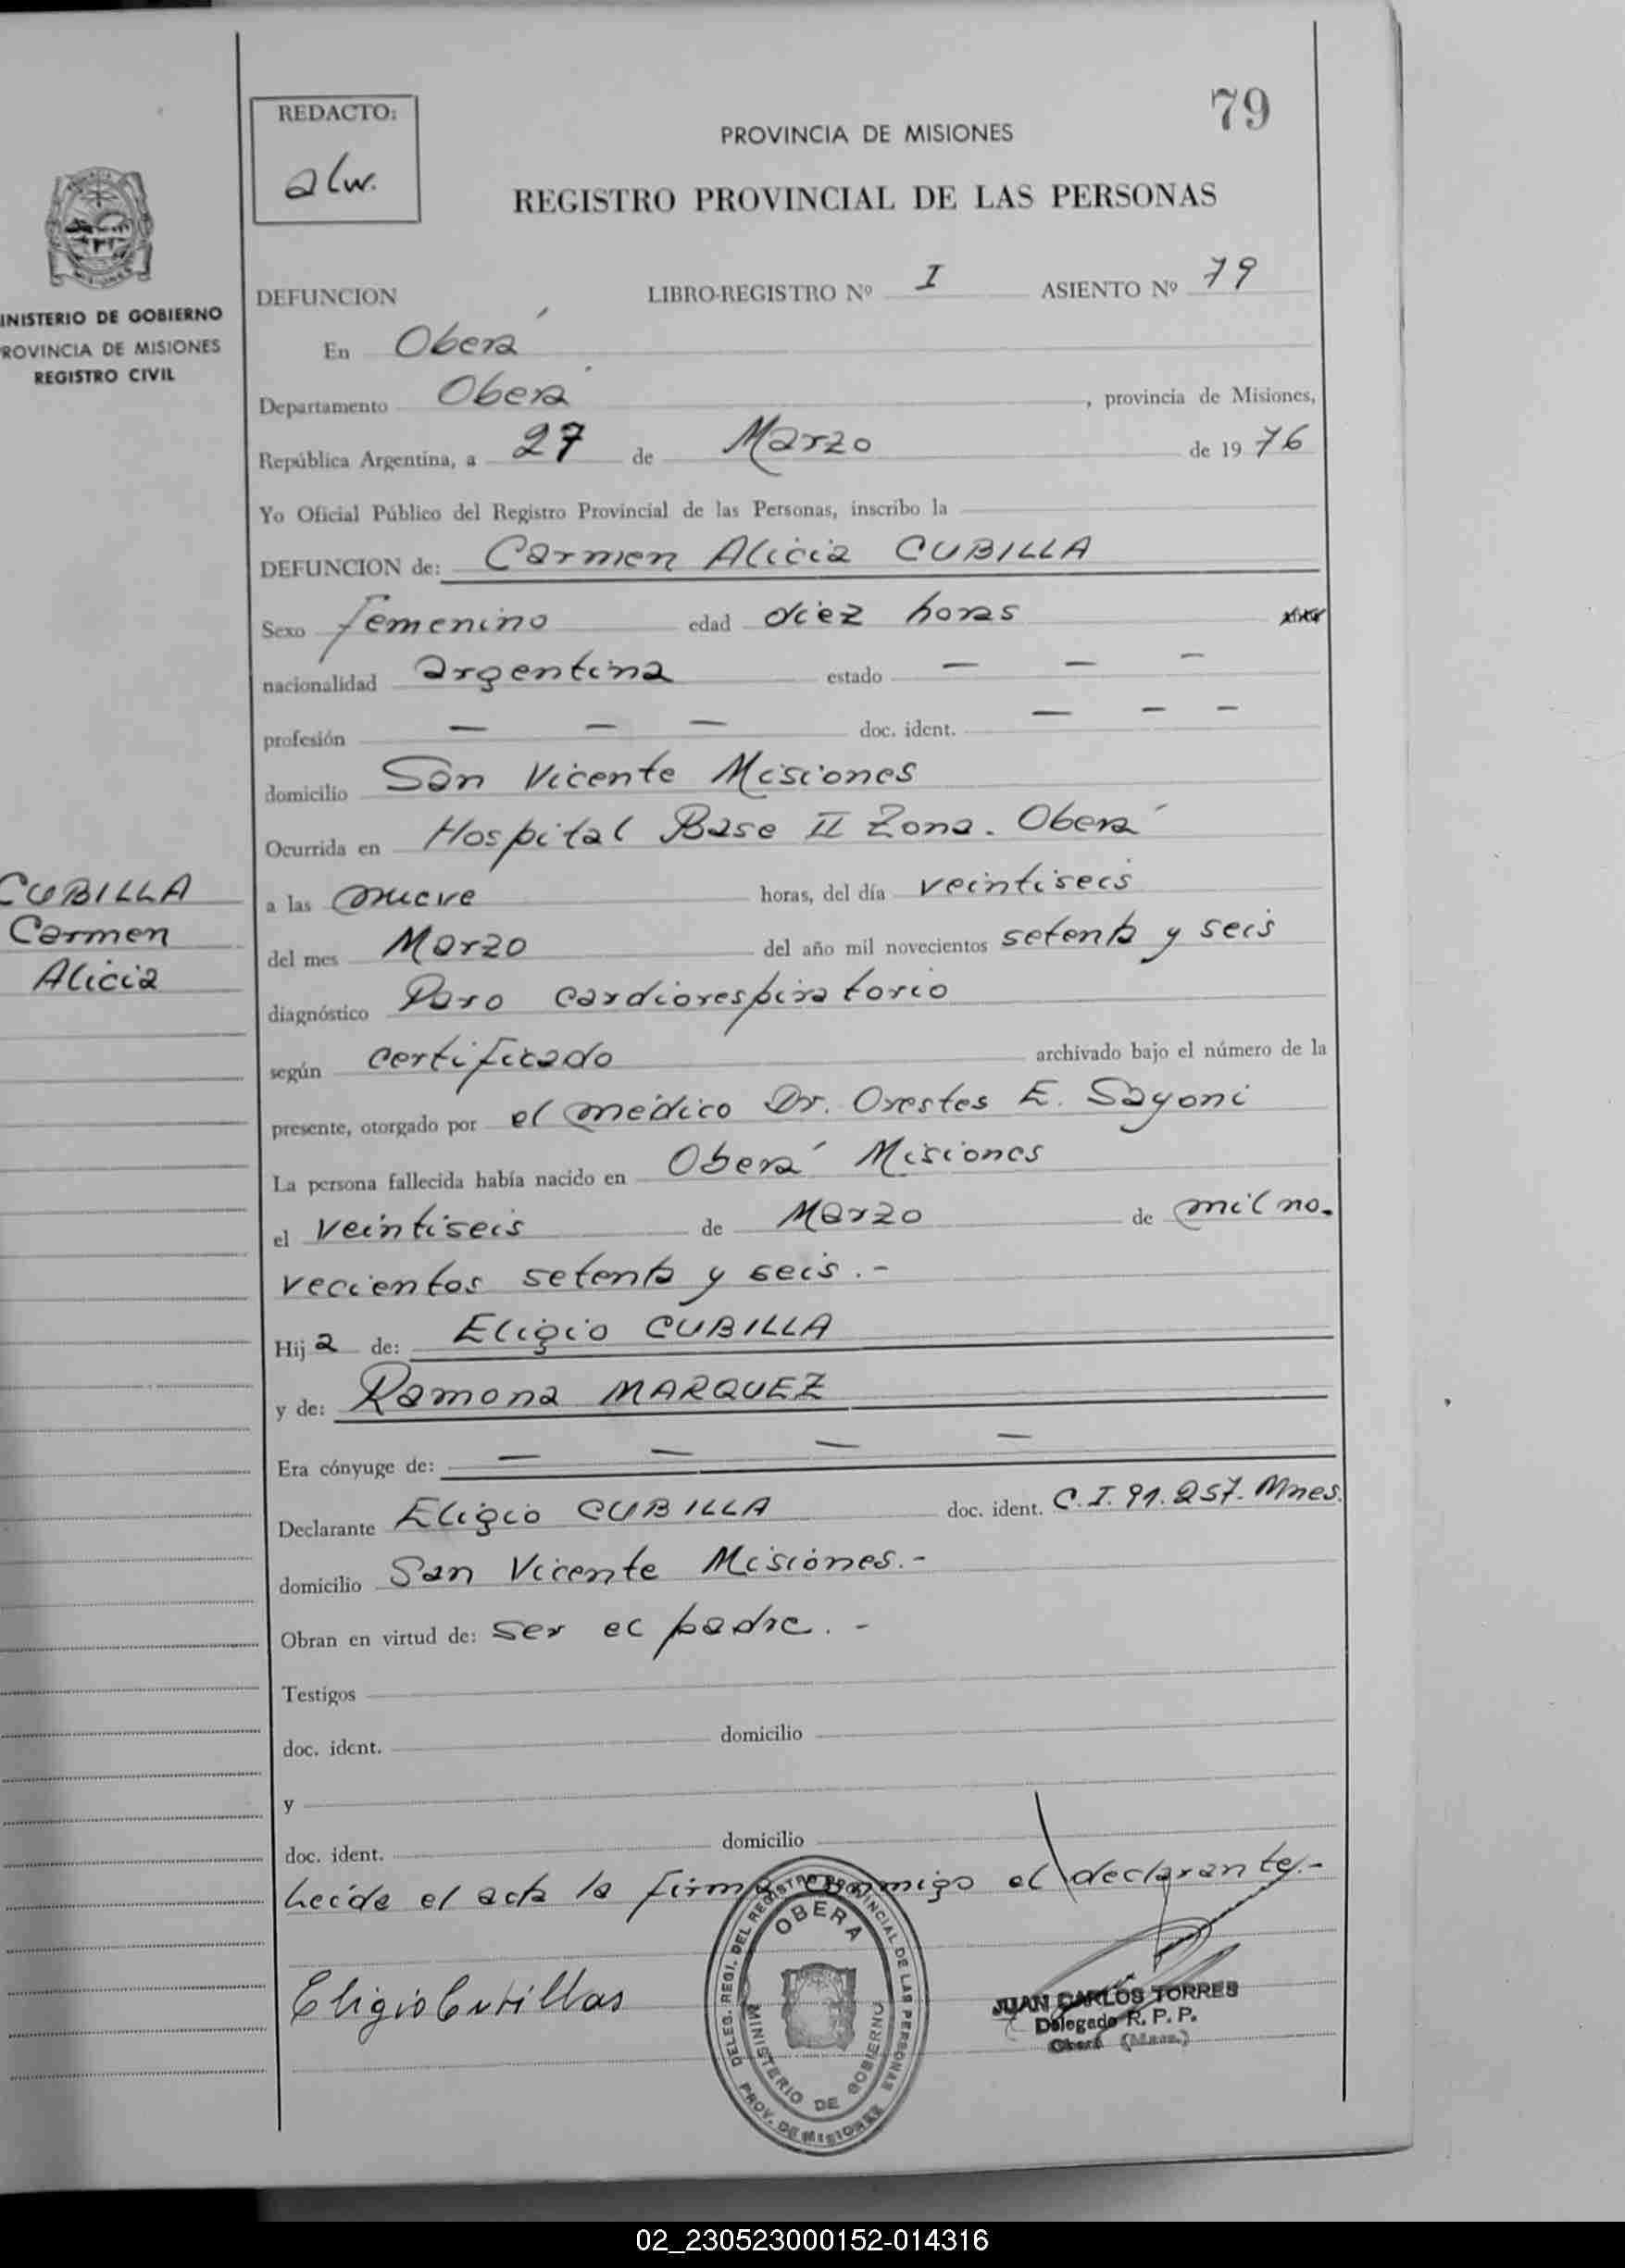 79
REDACTO:
alw.
PROVINCIA DE MISIONES
REGISTRO PROVINCIAL DE LAS PERSONAS
INISTERIO DE GOBIERNO
ROVINCIA DE MISIONES
REGISTRO CIVIL
DEFUNCION LIBRO-REGISTRO Nº I ASIENTO Nº 79
En Oberá
Departamento Oberá, provincia de Misiones,
República Argentina, a 27 de Marzo de 1976
Yo Oficial Público del Registro Provincial de las Personas, inscribo la
DEFUNCION de: Carmen Alicia CUBILLA
Sexo femenino edad diez horas
nacionalidad argentina estado — — —
profesión — — — doc. ident. — — —
domicilio San Vicente Misiones
Ocurrida en Hospital Base II Zona. Oberá
CUBILLA
Carmen
Alicia
a las nueve horas, del día veintiseis
del mes Marzo del año mil novecientos setenta y seis
diagnóstico Paro cardiorespiratorio
según certificado archivado bajo el número de la
presente, otorgado por el médico Dr. Orestes E. Sayoni
La persona fallecida había nacido en Oberá Misiones
el veintiseis de Marzo de mil no.
vecientos setenta y seis.-
Hija de: Eligio CUBILLA
y de: Ramona MARQUEZ
Era cónyuge de: — — — —
Declarante Eligio CUBILLA doc. ident. C.I. 91.257. Mnes.
domicilio San Vicente Misiones.-
Obran en virtud de: ser el padre.-
Testigos
doc. ident. domicilio
y
doc. ident. domicilio
Leida el acta la firma conmigo el declarante.-
Eligio Cubillas
DELEG. REGI. DEL REGISTRO PROVINCIAL DE LAS PERSONAS
OBERA
MINISTERIO DE GOBIERNO
PROV. DE MISIONES
JUAN CARLOS TORRES
Delegado R. P. P.
Oberá (Mnes.)
02_230523000152-014316